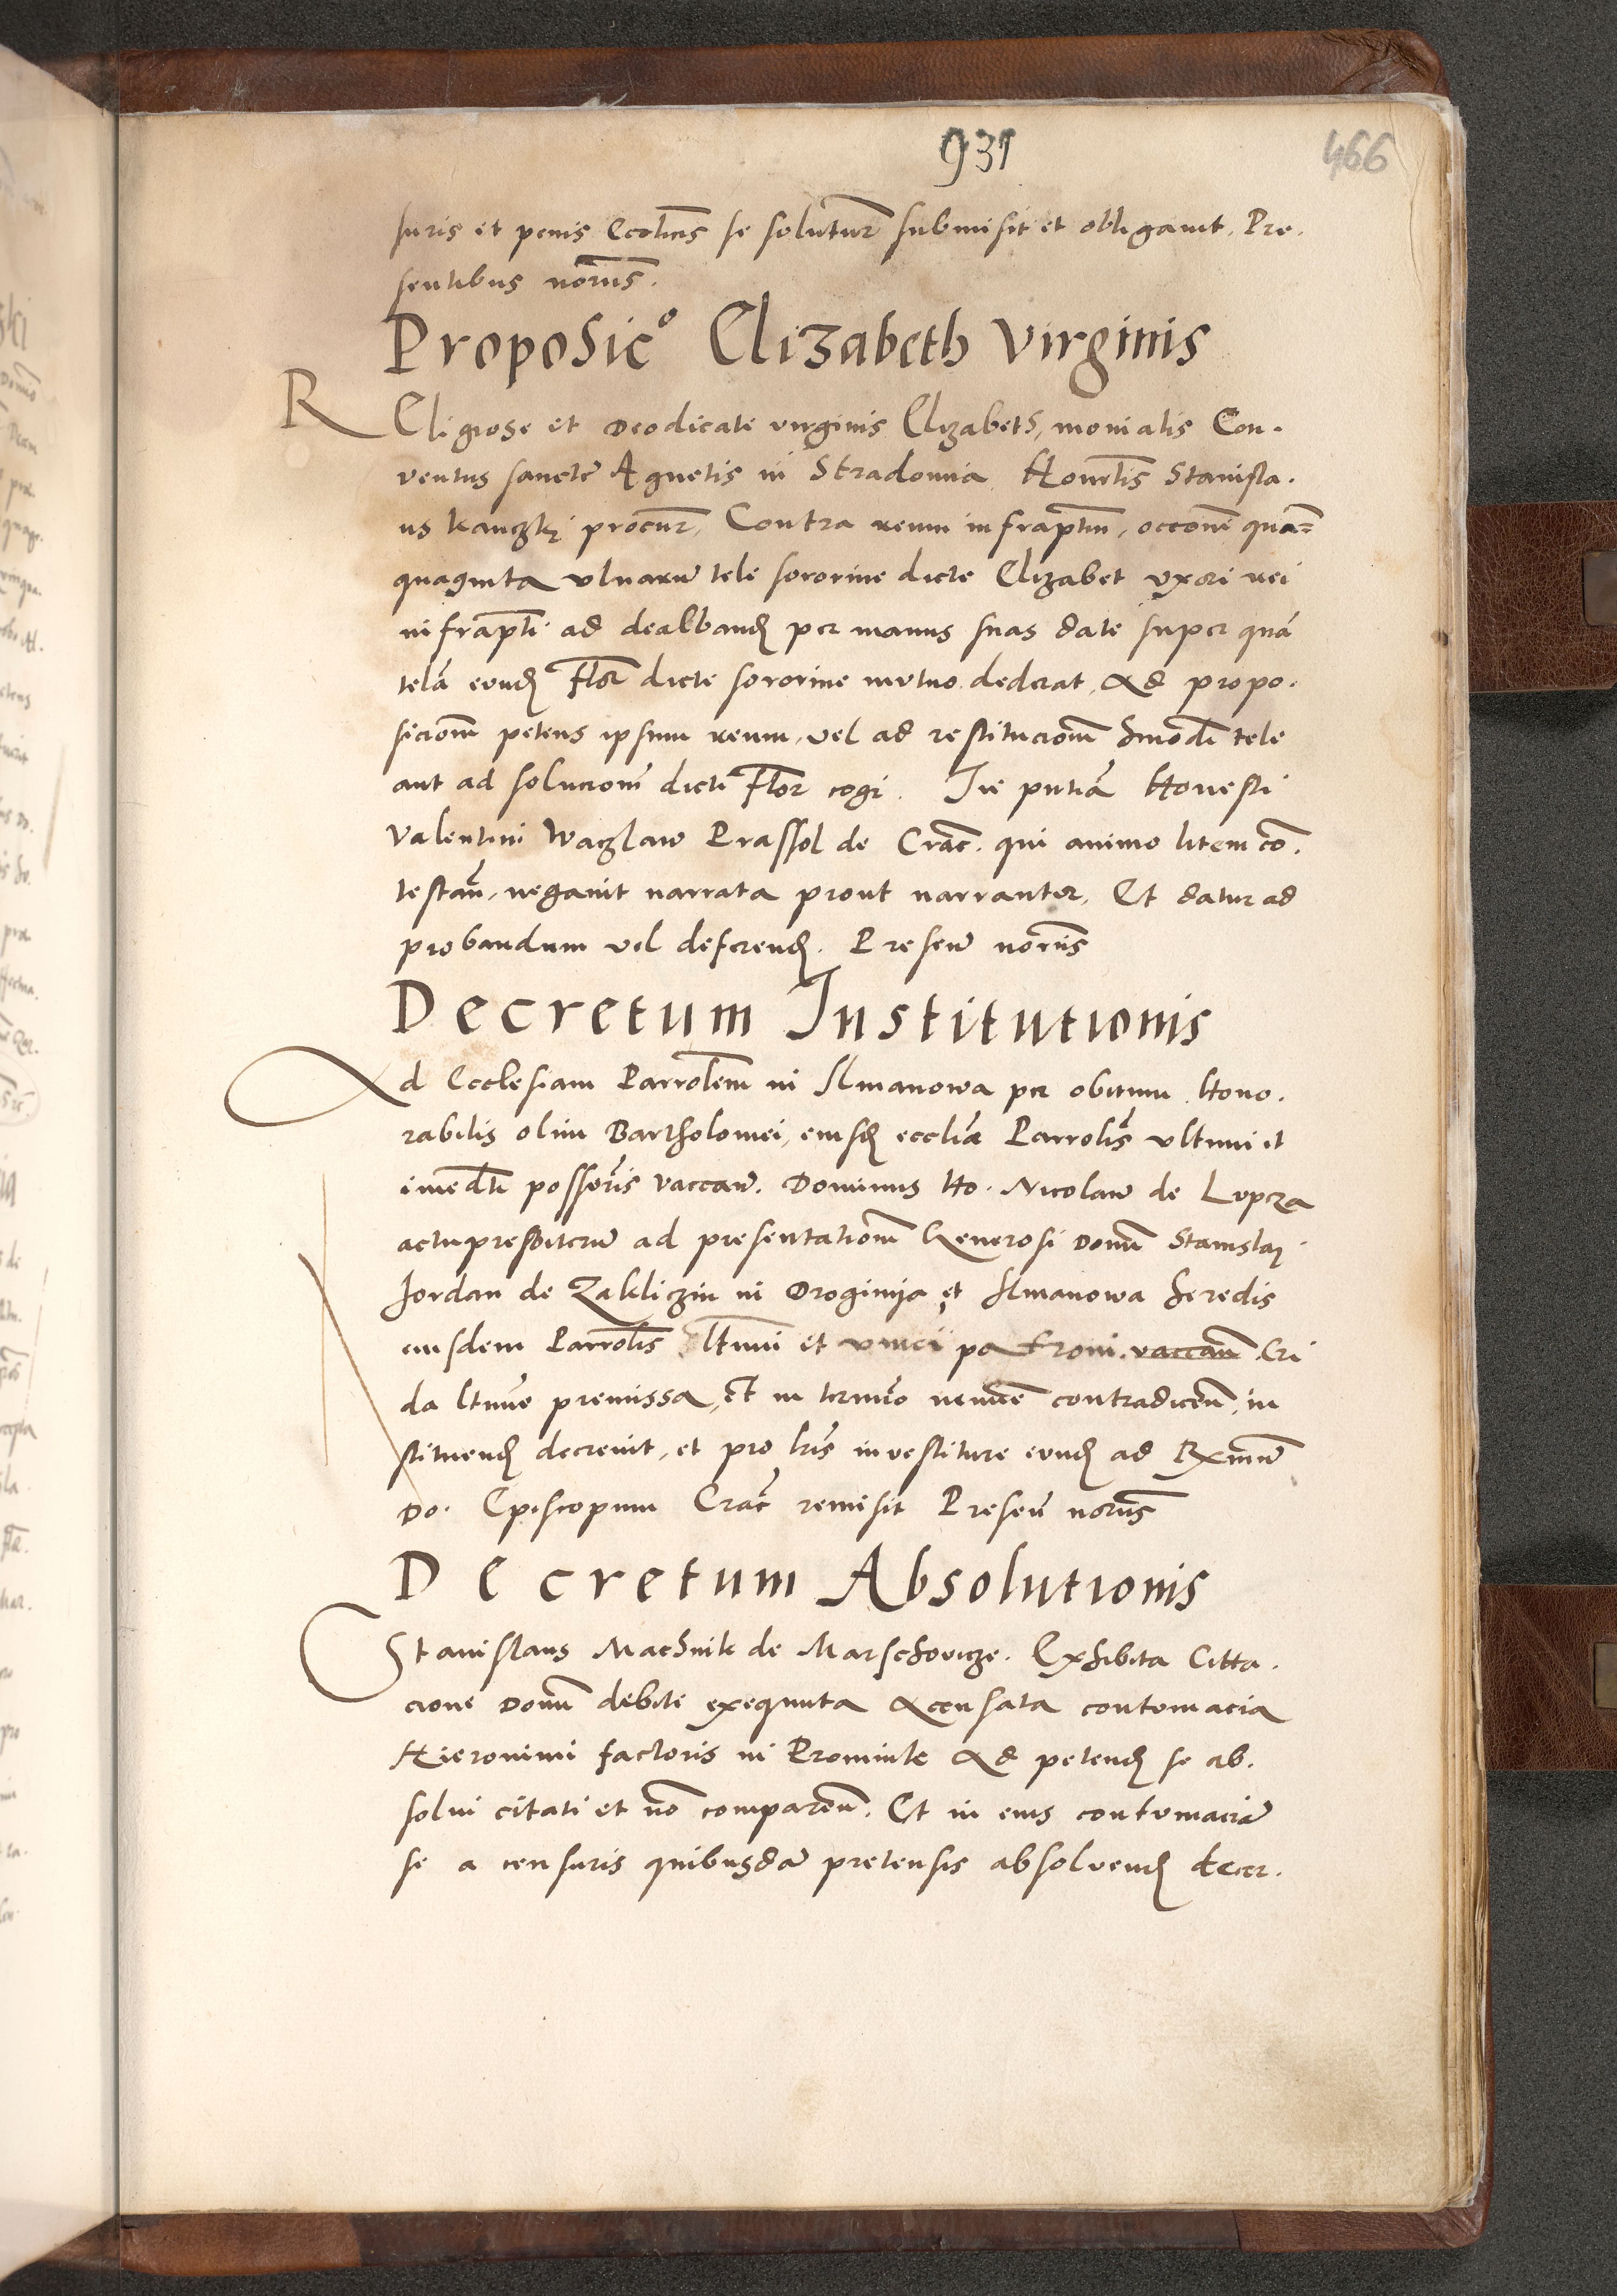 931
466
suris et penis Ecclicis se soluturum submisit et obligavit. Pre.
sentibus noriis.
Proposic° Elizabeth Virginis
REligiose et Deodicate virginis Elizabeth, monialis Con.
ventus sancte Agnetis in Stradomia Honestis Stanisla.
us kanczki procur, Contra reum infraptum, occone quā=
quaginta ulnarum tele sororine dicte Elizabet uxori rei
infrapti ad dealband per manus suas date super quā
telā eund flor dicte sororine mutuo dederat Ad propo.
sicionem petens ipsum reum, vel ad restitucionem hmodi tele
aut ad solucionem dicti flor cogi. In pntia Honesti
Valentini Waczlaw Prassol de Crac. qui animo litem co.
testan, negavit narrata prout narrantur, Et datur ad
probandum vel deferend. Presen noriis
Decretum Institutionis
Ad Ecclesiam Parrolem in Ilmanowa per obitum Hono.
rabilis olim Bartholomei, eiusd ecclia Parrolis ultimi et
imedti possoris vaccan. Dominus Ho. Nicolaum de Lupcza
actupresbiterum ad presentationem Generosi Domi Stanislai
Jordan de Zakliczin in Droginija et Ilmanowa heredis
eiusdem Parrolis ltimi et unici patroni. vaccan Cri
da ltime premissa, et in termino nemine contradicen, in
stituend decrevit, et pro lris investiture eund ad Rxmum
Do. Episcopum Crac remisit Presen noriis
DEcretum Absolutionis
Stanislaus Machnik de Marschovicze. Exhibita Citta.
cione Domi debite exequuta Accusata contumacia
Hieronimi factoris in Promnik Ad petend se ab.
solvi citati et no comparen. Et in eius contumaciam
se a censuris quibusdā pretensis absolvend decer.